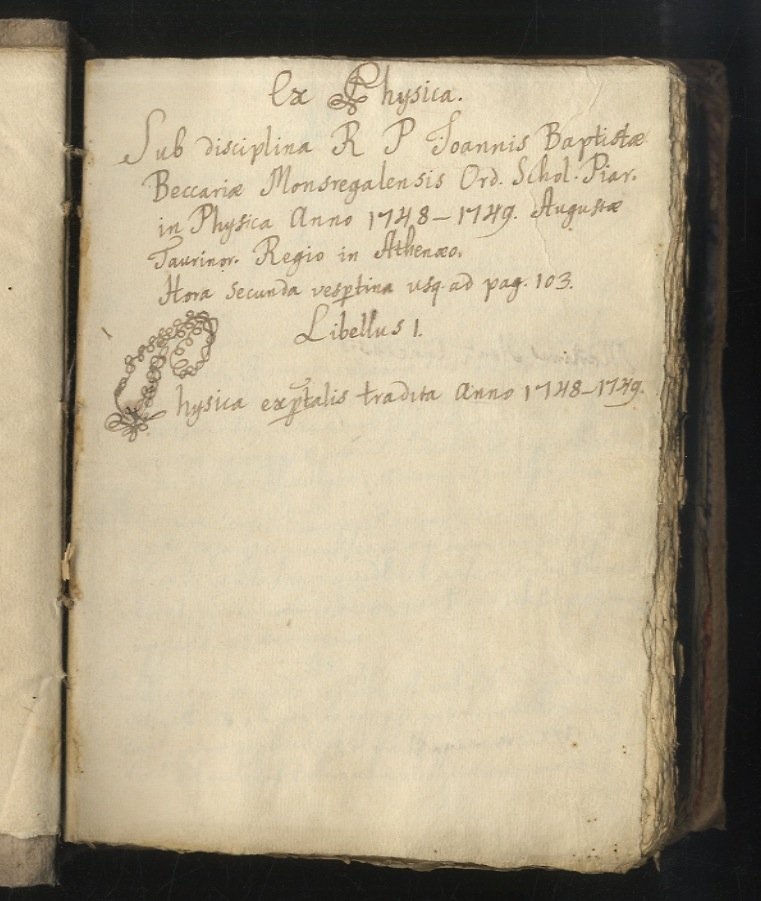 Ex Physica.
Sub disciplina R P Joannis Baptistæ
Beccariæ Monsregalensis Ord. Schol. Piar.
in Physica Anno 1748–1749. Augustæ
Taurinor. Regio in Athenæo.
Hora secunda vesptina usq. ad pag. 103.
Libellus 1.
Physica exptalis tradita Anno 1748–1749.